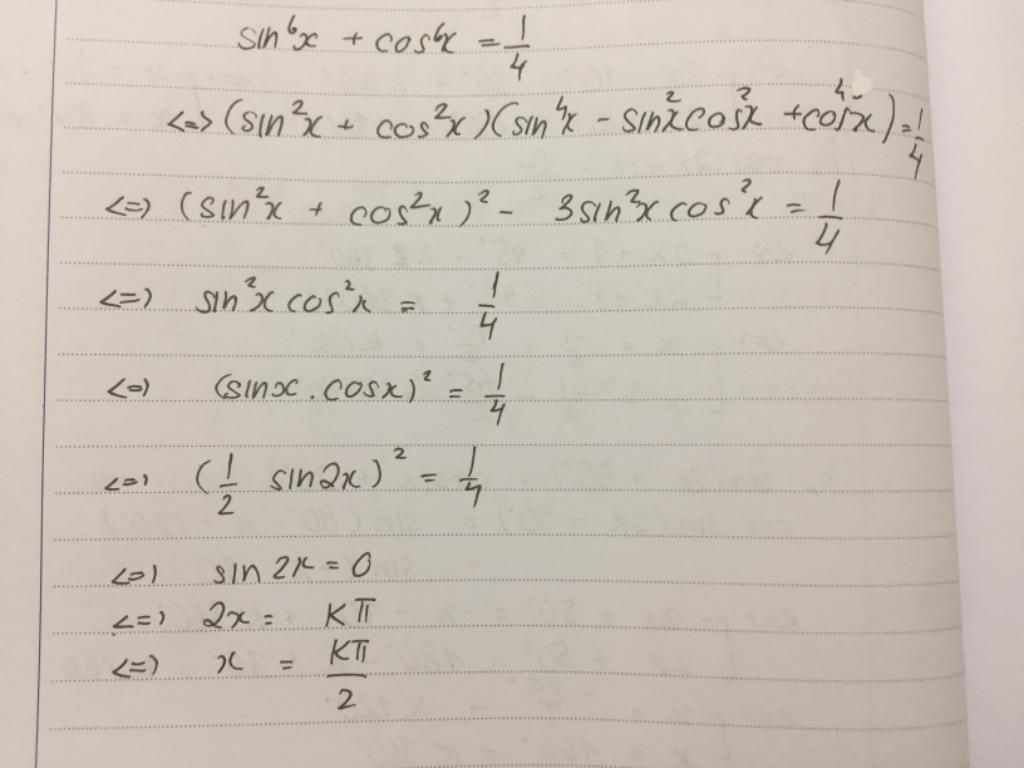 sin⁶x + cos⁶x = 1/4
<=> (sin²x + cos²x)(sin⁴x - sin²x cos²x + cos⁴x) = 1/4
<=> (sin²x + cos²x)² - 3sin²x cos²x = 1/4
<=> sin²x cos²x = 1/4
<=> (sinx . cosx)² = 1/4
<=> (1/2 sin2x)² = 1/4
<=> sin 2x = 0
<=> 2x = kπ
<=> x = kπ/2